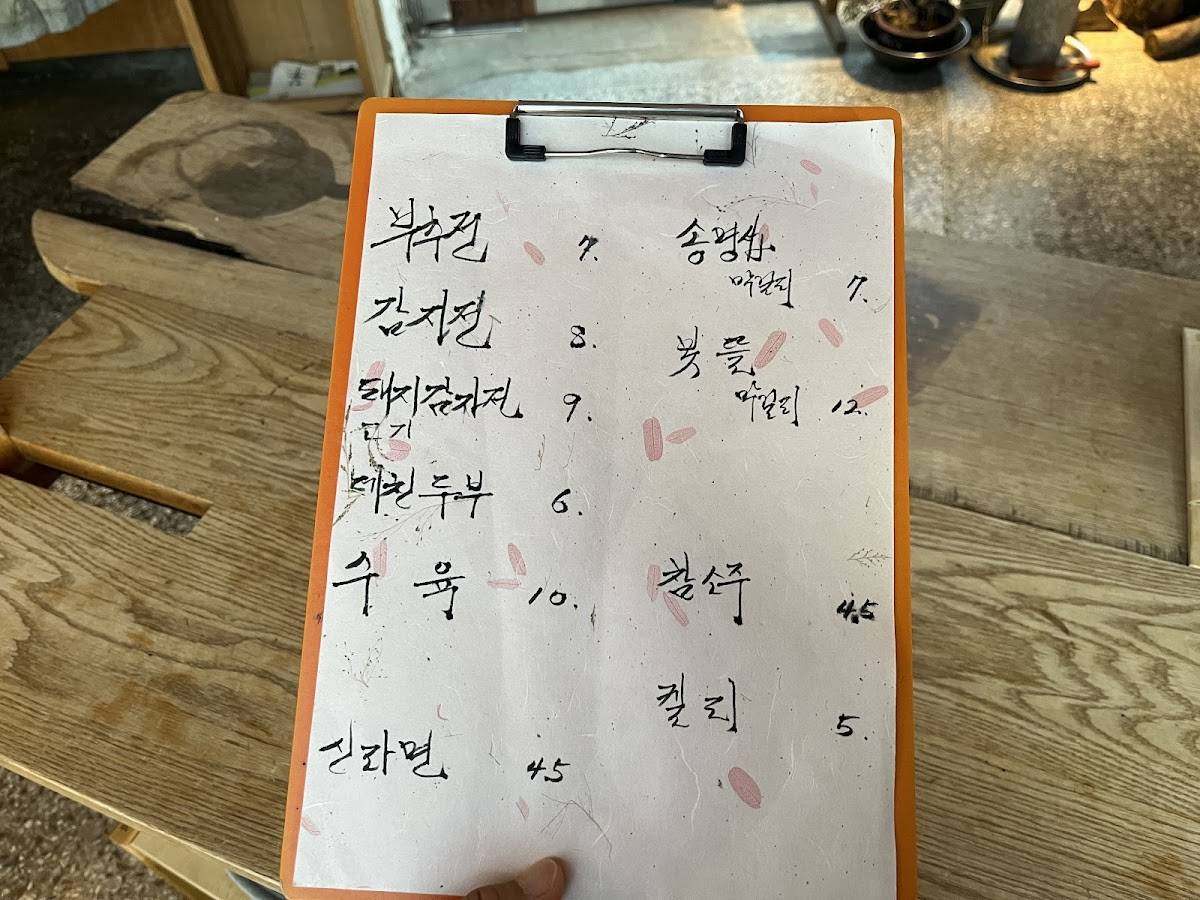 부추전 7.
감자전 8.
돼지감자전 9.
고기
데친두부 6.
수육 10.
신라면 4.5
송명섭
막걸리 7.
붓뜰
막걸리 12.
참소주 4.5
켈리 5.